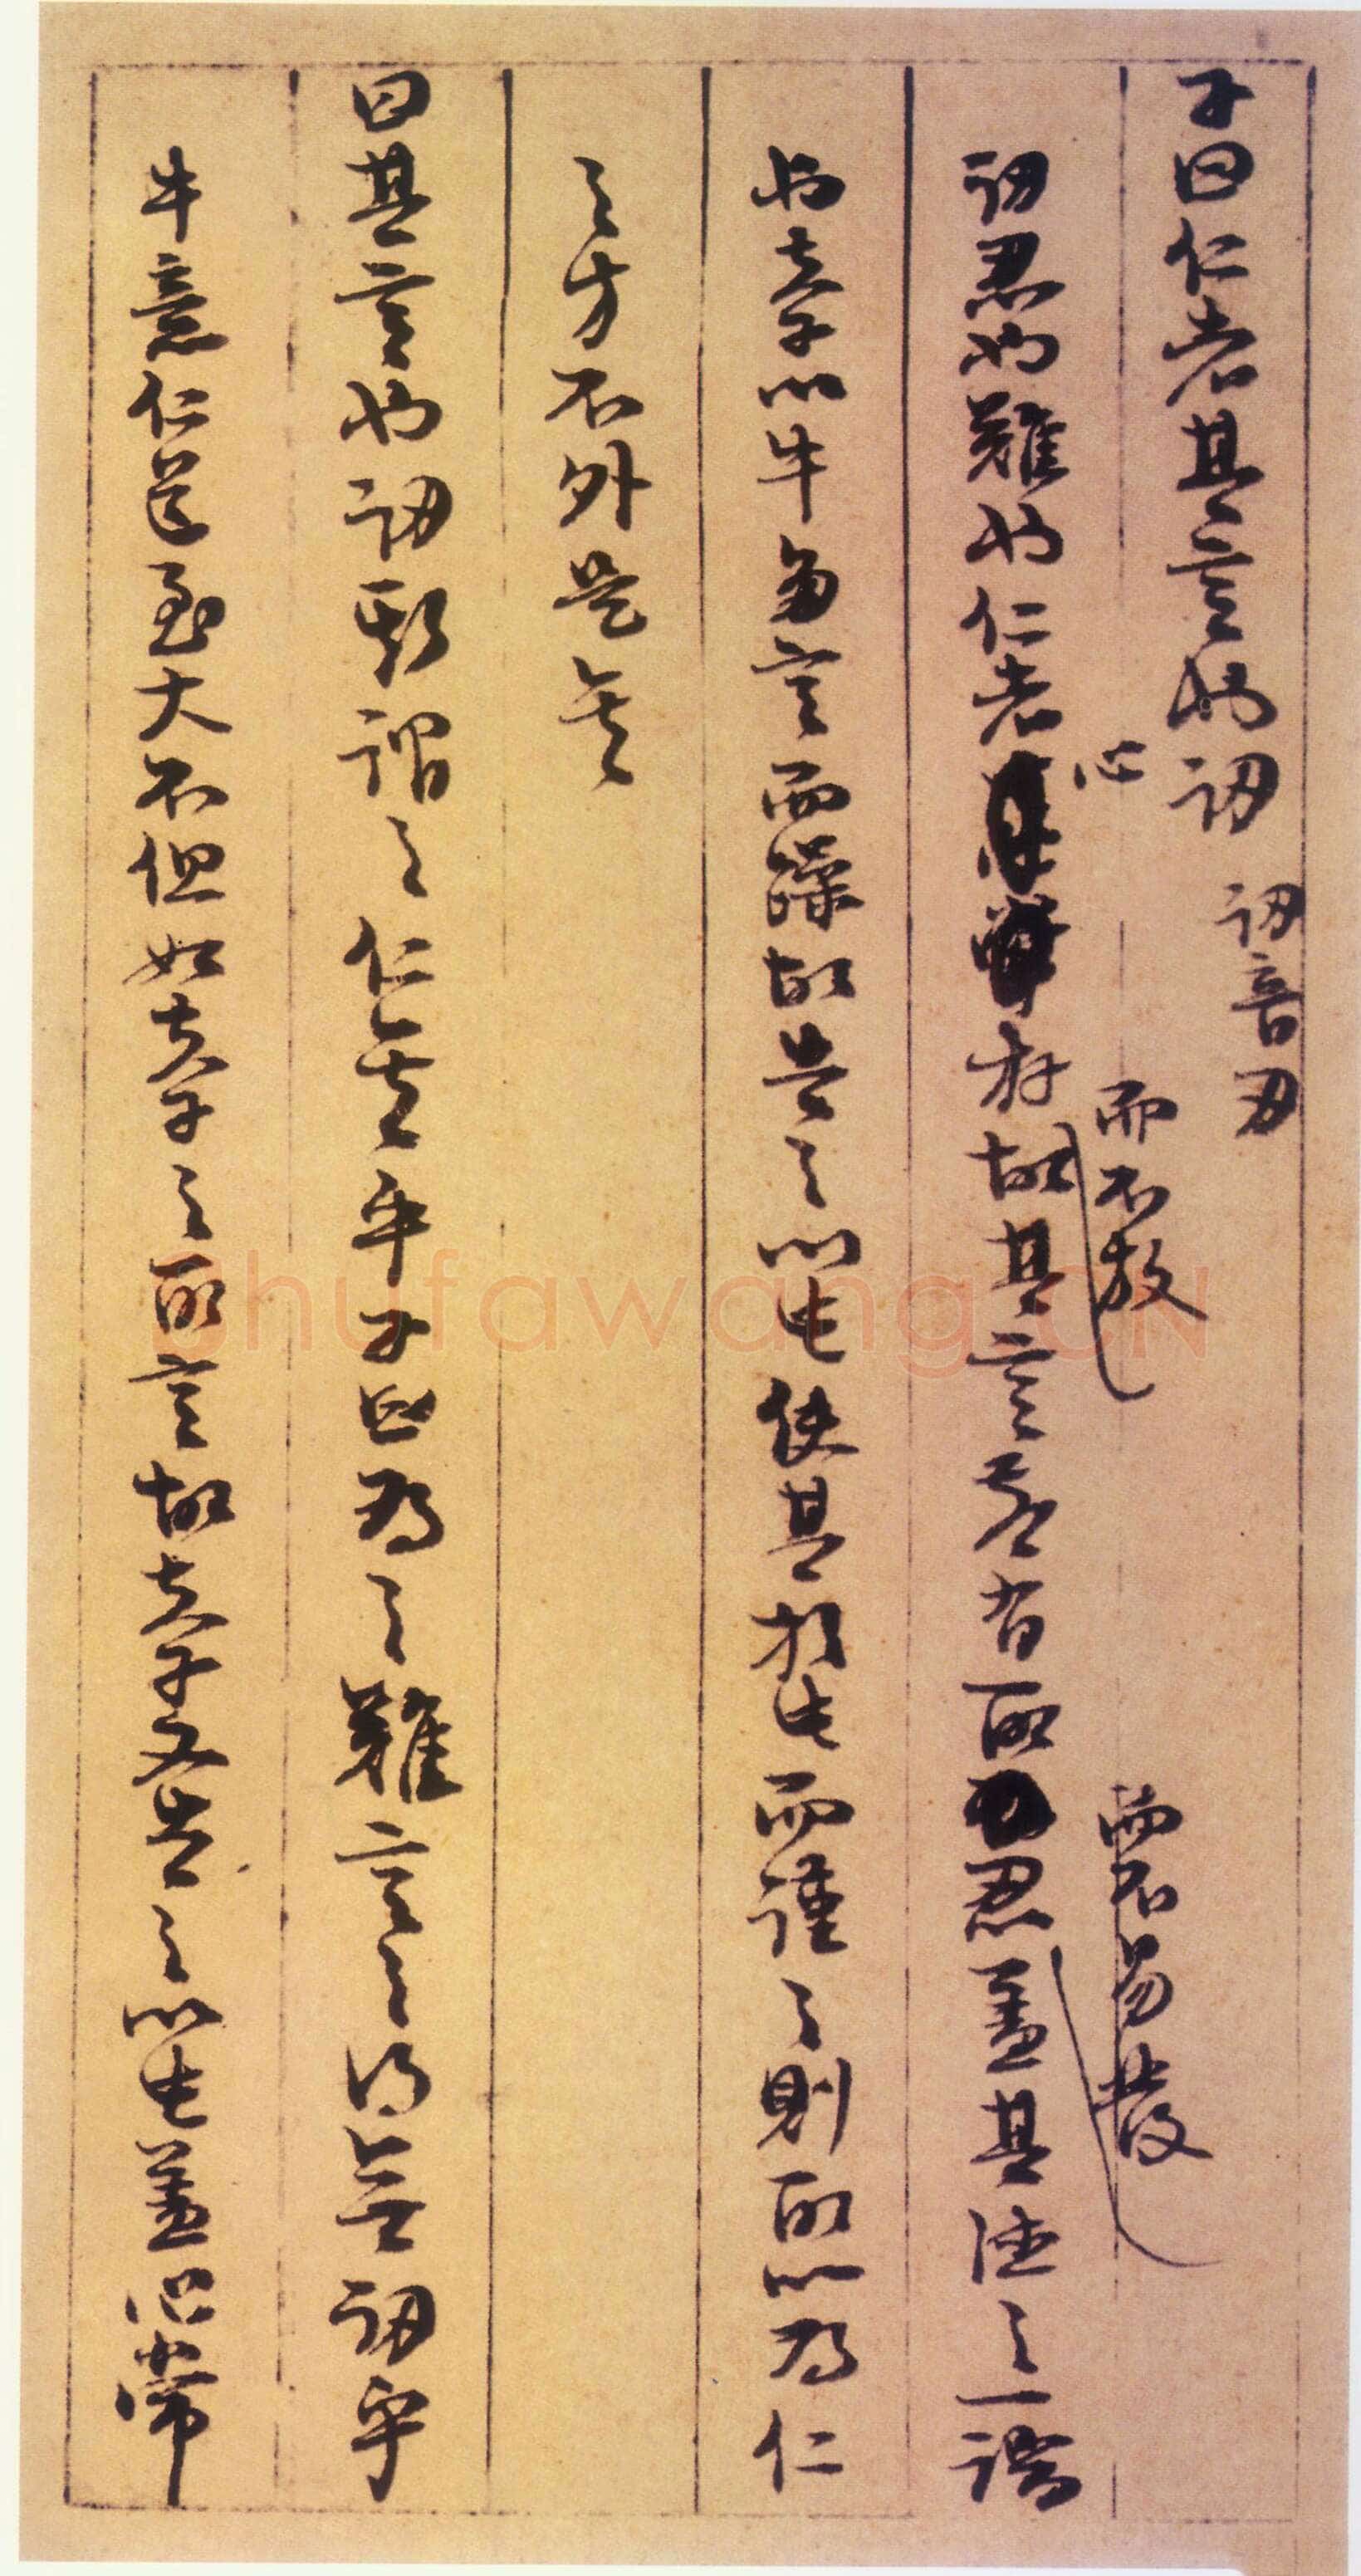 子曰仁者其言也訒 訒音刃
訒忍也難也仁者心存而不放故其言若有所忍而不易發蓋其德之一端
也夫子以牛多言而躁故告之以此使其於此而謹之則所以為仁
之方不外是矣
曰其言也訒斯謂之仁矣乎子曰為之難言之得無訒乎
牛意仁道至大不但如夫子之所言故夫子又告之以此蓋心常
shufawang.CN